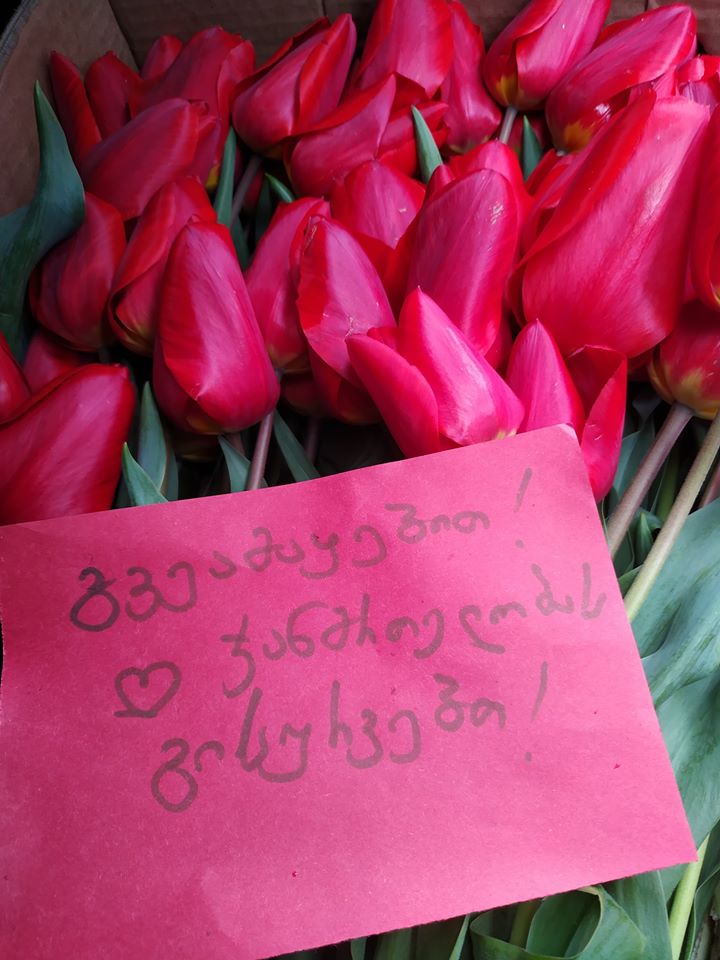 გვეამაყებით!
♡ ჯანმრთელობას
გისურვებთ!